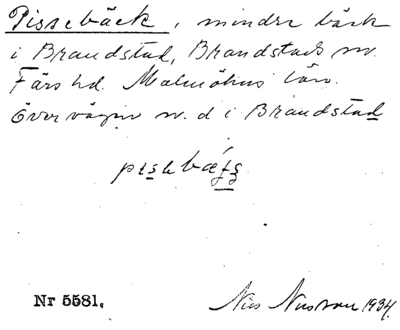 Pissebäck, mindre bäck
i Brandstad, Brandstads sn.
Färs hd. Malmöhus län.
Över vägen v. d i Brandstad
Nr 5581.
Nils Nilsson 1934.